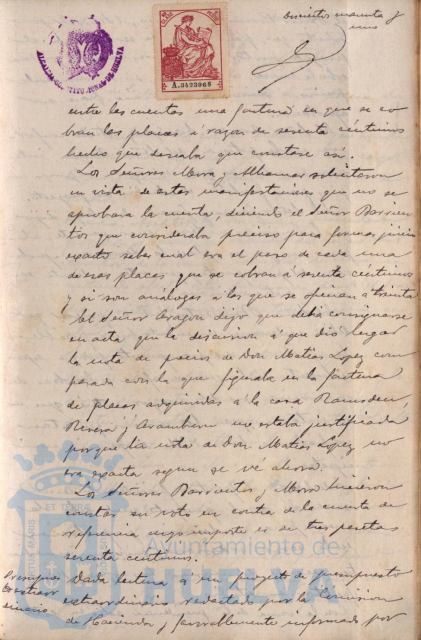 Doscientos noventa y
uno
ALCALDIA CONSTITUCIONAL DE HUELVA
A.3423968
entre las cuentas una factura en que se co
bran las placas á razon de sesenta céntimos
hecho que deseaba que constase así.
Los Señores Mora y Albarran solicitaron
en vista de estas manifestaciones que no se
aprobara la cuenta, diciendo el Señor Barrien
tos que consideraba preciso para formar juicio
exacto saber cual era el peso de cada una
de esas placas que se cobran á sesenta céntimos
y si son análogas á las que se ofrecen á treinta
El Señor Aragon dijo que debia consignarse
en acta que la discusion á que dió lugar
la nota de precios de Don Matias López com
parada con la que figuraba en la factura
de placas adquiridas á la casa
Rivera y Aramburu no estaba justificada
porque la nota de Don Matias López no
era exacta segun se ve ahora.
Los Señores Barrientos y Mora hicieron
constar su voto en contra de la cuenta de
referencia cuyo importe es de tres pesetas
sesenta centimos.
Presupuesto
extraor
dinario
Dada lectura á un proyecto de presupuesto
extraordinario redactado por la Comision
de Hacienda y favorablemente informado por
Ayuntamiento de
HUELVA